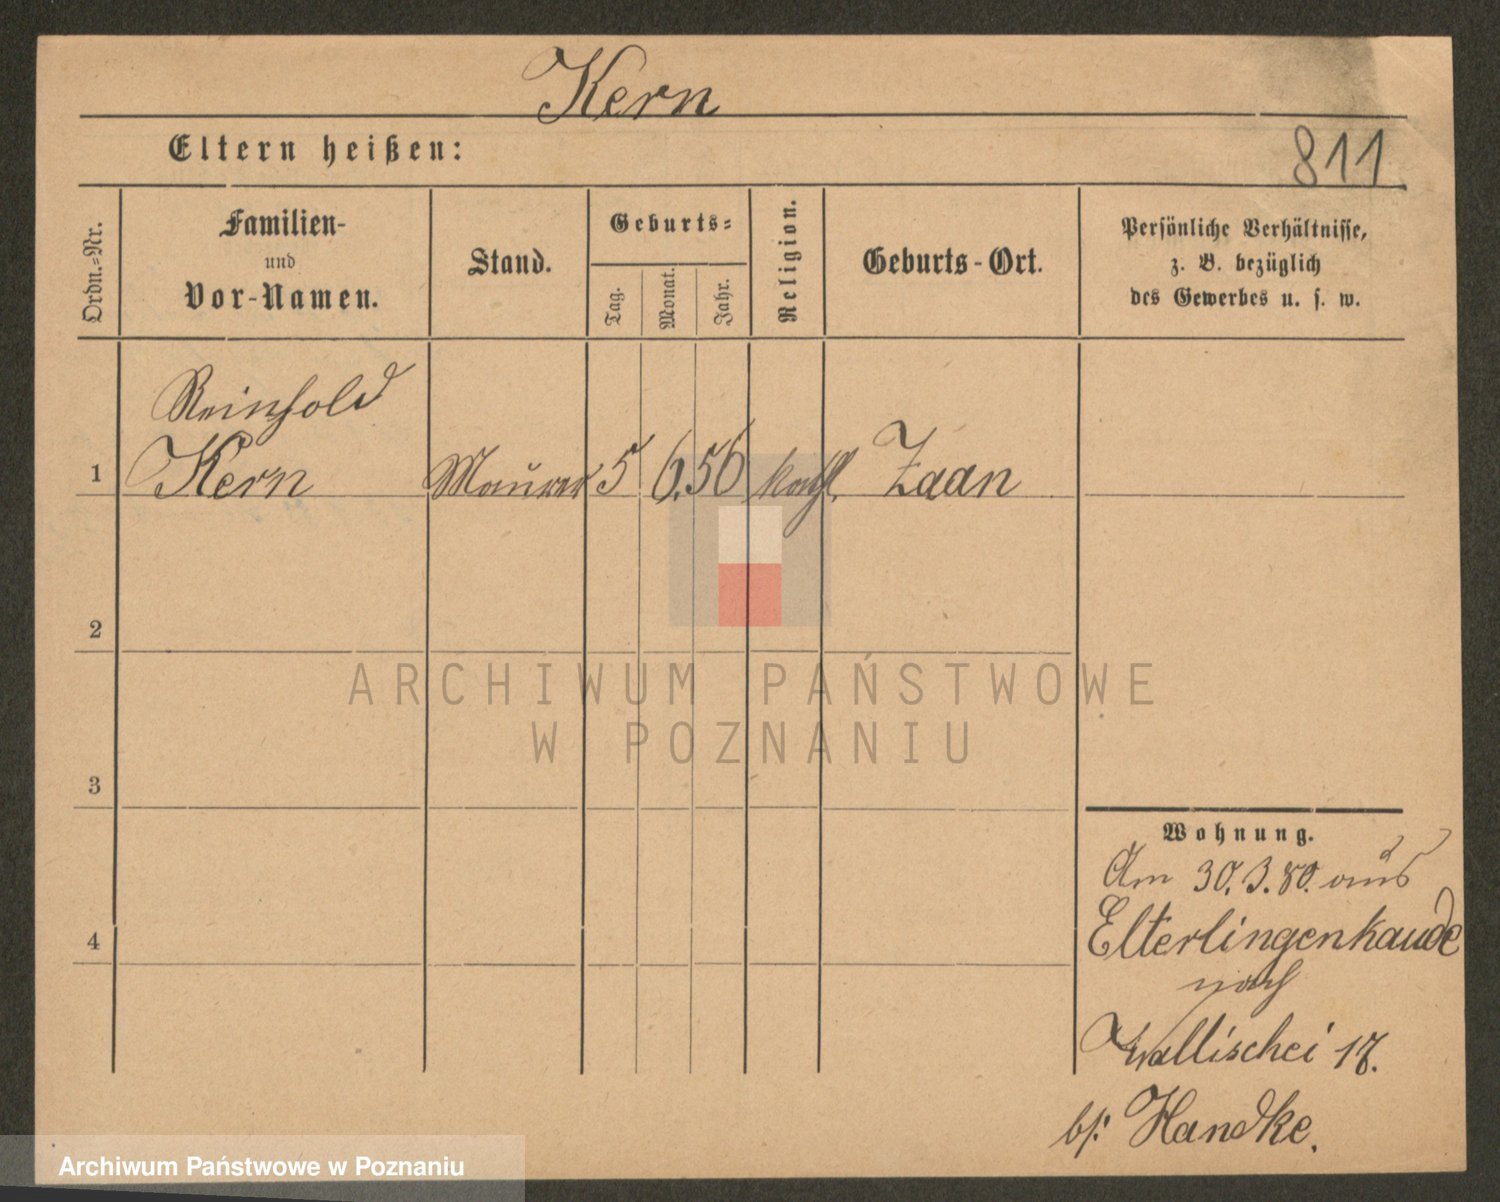 Kern
Eltern heißen:
811
Ordn.-Nr.
Familien-
und
Vor-Namen.
Stand.
Geburts-
Tag.
Monat.
Jahr.
Religion.
Geburts-Ort.
Persönliche Verhältnisse,
z. B. bezüglich
des Gewerbes u. s. w.
Reinhold
1 Kern Maurer 5 6. 56 kath. Zaan
2
3
4
ARCHIWUM PAŃSTWOWE
W POZNANIU
Wohnung.
Am 30.3.80. aus
Elterlingenkaude
nach
Wallischei 17.
bei Handke.
Archiwum Państwowe w Poznaniu